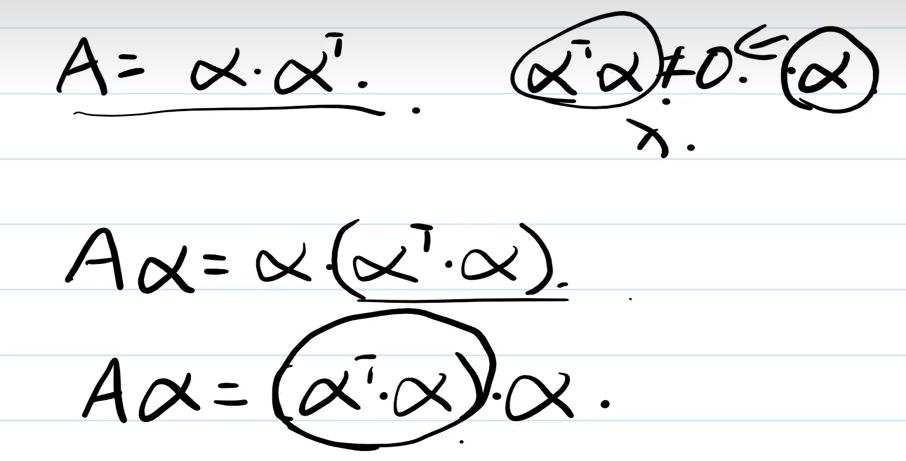 A = α·αᵀ. αᵀα ≠ 0. ⇐ α
λ.
Aα = α·(αᵀ·α).
Aα = (αᵀ·α)·α.